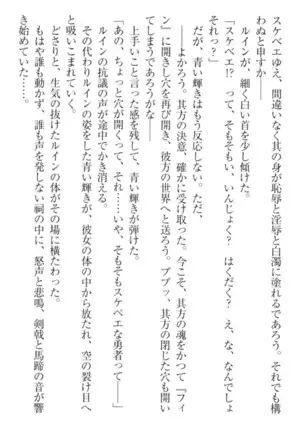 スケベエゆえ、間違いなく其の身が恥辱と淫辱と白濁に塗れるであろう。それでも構
わぬと申すか――
　ルインが、細く白い首を少し傾けた。
「スケベエ!?　って、そもそもい、いんじょく？　はくだく？　え、な、なんでしょ
それっ？」
　だが、青い輝きはもう反応しない。ただ、
――よかろう。其方の決意、確かに受け取った。今こそ、其方の魂をかつて『フィ
ン』に開きし穴を再び開き、彼方の世界へと送ろう。ブブッ、其方の閉じた穴も開い
てしまうであろうがな――
　上手いこと言った感を残して、青い輝きが弾けた。
「あの、ちょっと穴が開くって、それ……いや、そもそもスケベエな勇者って――」
　ルインの抗議の声が途中でかき消える。
　その代わりルインの姿をした青い輝きが、彼女の体の中から放たれ、空の裂け目へ
と吸いこまれていく。
　どさりと、生気の抜けたルインの体がその場に横たわった。
　もはや誰も動かず、誰も声を発しない祠の中に、怒声と悲鳴、剣戟と馬蹄の音が響
き始めていた……。